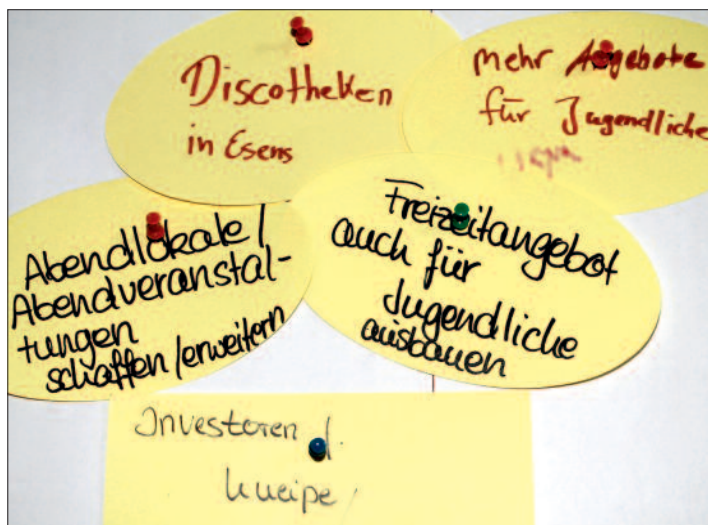 Discotheken
in Esens
mehr Angebote
für Jugendliche
Abendlokale/
Abendveranstal-
tungen
schaffen/erweitern
Freizeitangebot
auch für
Jugendliche
ausbauen
Investoren f.
Kneipe